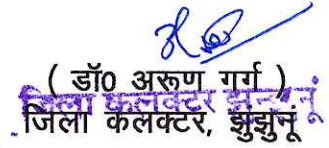 ( डॉ0 अरूण गर्ग )
जिला कलक्टर झुन्झुनूं
जिला कलक्टर, झुंझुनू